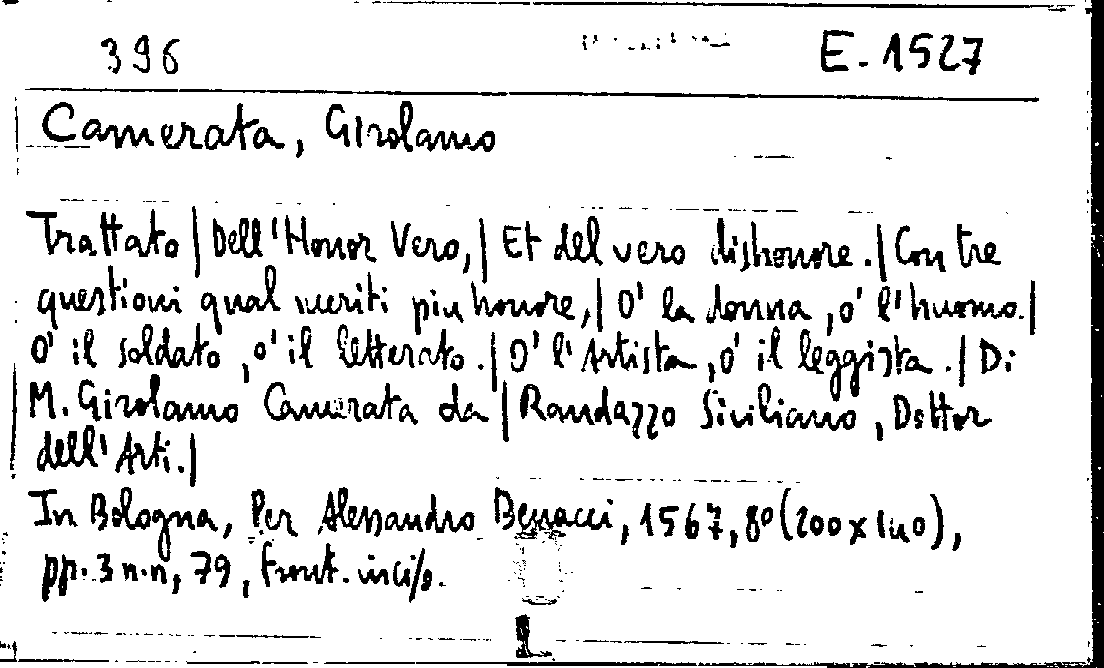 396 E. 1527
Camerata, Girolamo
Trattato | Dell'Honor Vero, | Et del vero dishonore. | Con tre
questioni qual meriti piu honore, | O' la donna, o' l'huomo. |
O' il soldato, o' il letterato. | O' l'Artista, o' il leggista. | Di
M. Girolamo Camerata da | Randazzo Siciliano, Dottor
dell'Arti. |
In Bologna, Per Alessandro Benacci, 1567, 8º (200 x 140),
pp. 3 n.n, 79, front. inciso.